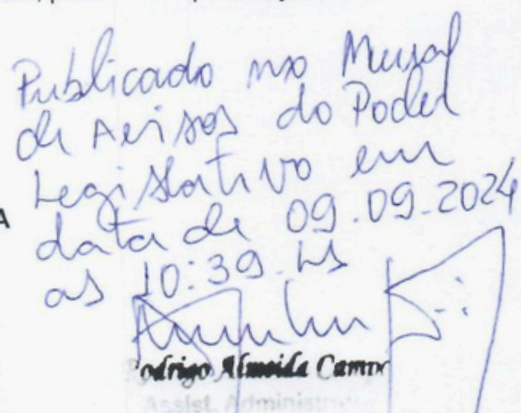 Publicado no Mural
de Avisos do Poder
Legislativo em
A
data de 09.09.2024
as 10:39 hs
Rodrigo Almeida Camp
Assist. Administra